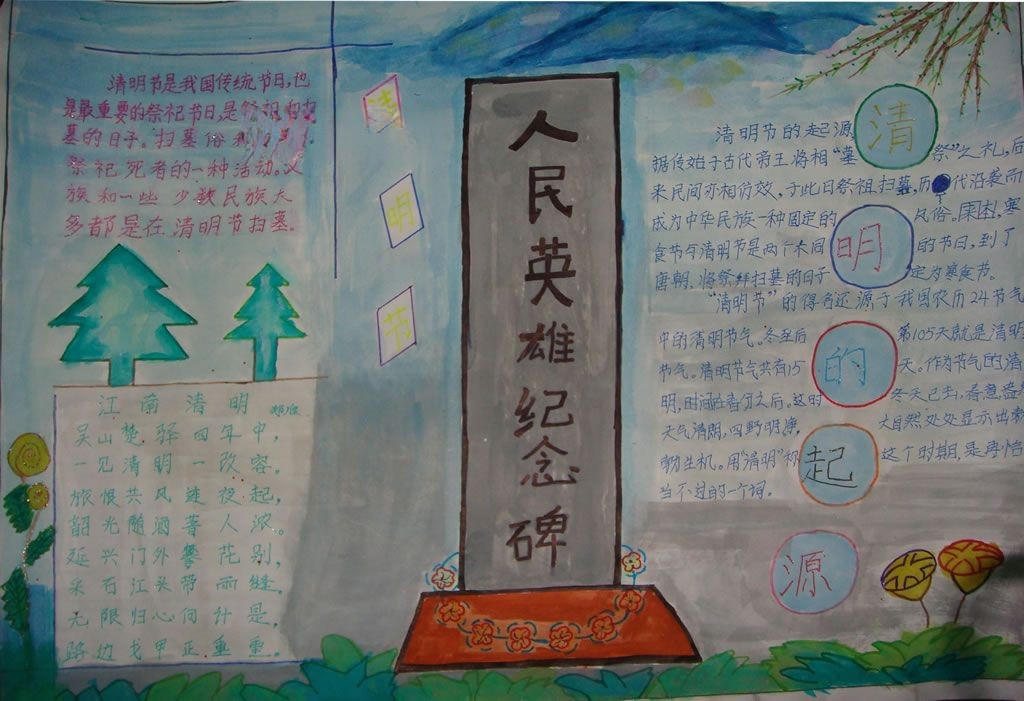 清明节是我国传统节日,也
是最重要的祭祀节日,是
墓的日子。扫墓俗
祭祀死者的一种活动。汉
族和一些少数民族大
多都是在清明节扫墓。
江南清明
吴山楚驿四年中,
一见清明一改容。
旅恨共风连夜起,
韶光随酒著人浓。
延兴门外攀花别,
采石江头带雨缝。
无限归心何计是,
路边戈甲正重重。
清
明
节
人民英雄纪念碑
清明节的起源
据传始于古代帝王将相“墓祭”之礼,后
来民间亦相仿效,于此日祭祖扫墓,历代沿袭而
成为中华民族一种固定的风俗。寒
食节与清明节是两个不同的节日,到了
唐朝,将祭拜扫墓的日子定为寒食节。
“清明节”的得名还源于我国农历24节气
中的清明节气。冬至后第105天就是清明
节气。清明节气共有15天。作为节气的清
明,时间在春分之后。这时冬天已去,春意盎
天气清朗,四野明净,大自然处处显示出勃
勃生机。用“清明”称这个时期,是再恰
当不过的一个词。
清
明
的
起
源